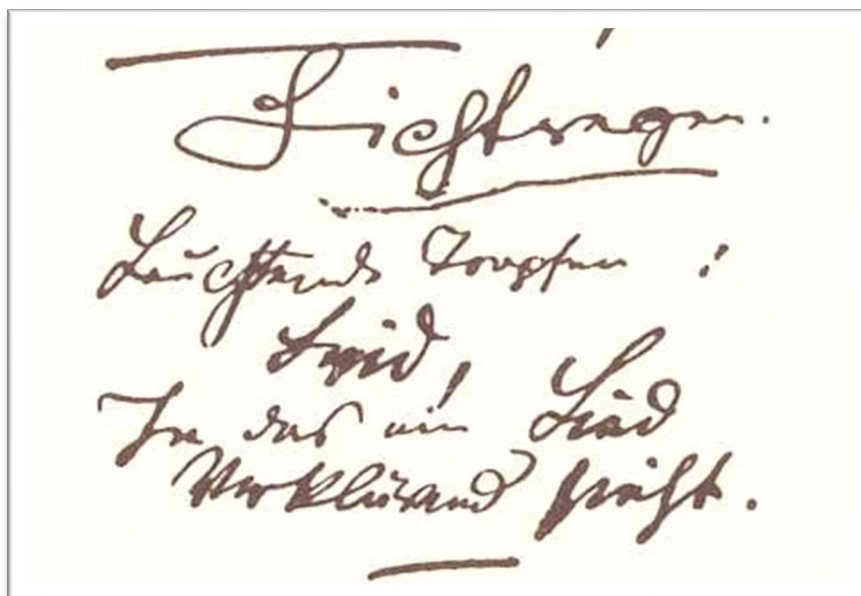 Lichtregen.
Leuchtende Tropfen :
Leid,
In das ein Lied
Verklärend sieht.